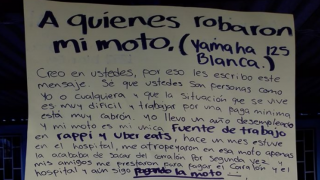 A quienes robaron
mi moto. (Yamaha 125
Blanca.)
Creo en ustedes, por eso les escribo este
mensaje. Sé que ustedes son personas como
yo o cualquiera y que la situación que se vive
es muy dificil y trabajar por una paga minima
está muy cabrón. yo llevo un año desempleado
y mi moto es mi unica Fuente de trabajo
en rappi y uber eats, hace un mes estuve
en el hospital, me atropeyaron en esa moto apenas
la acababa de sacar del corralón Por segunda vez
mis amigos me prestaron para pagar el corralón y el
hospital y aún sigo pagando la moto